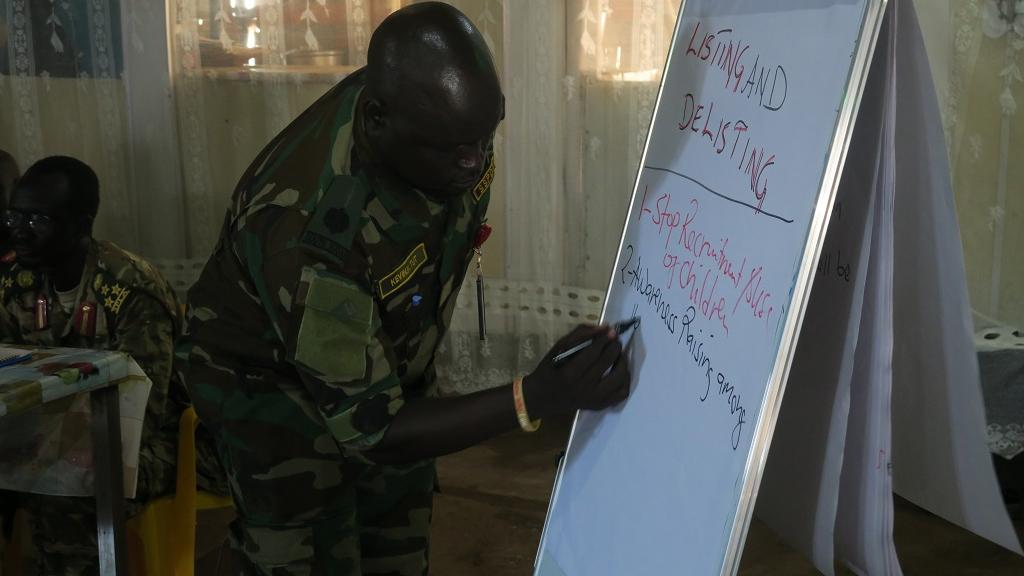 LISTING AND
DELISTING
1- Stop Recruitment /
of Children
2- Awareness Raising among
be